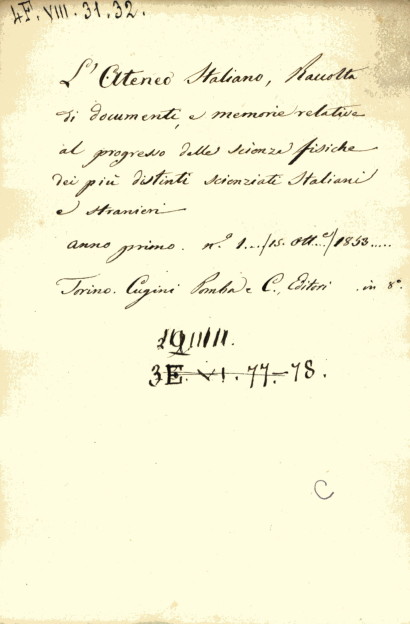 4F. VIII. 31. 32.
L' Ateneo Italiano, Raccolta
di documenti, e memorie relative
al progresso delle scienze fisiche
dei più distinti scienziati Italiani
e stranieri
anno primo. n.º 1.../15. ott.e/1853.....
Torino. Cugini Pomba e C., Editori . in 8º
3E. VI. 77.-78.
C